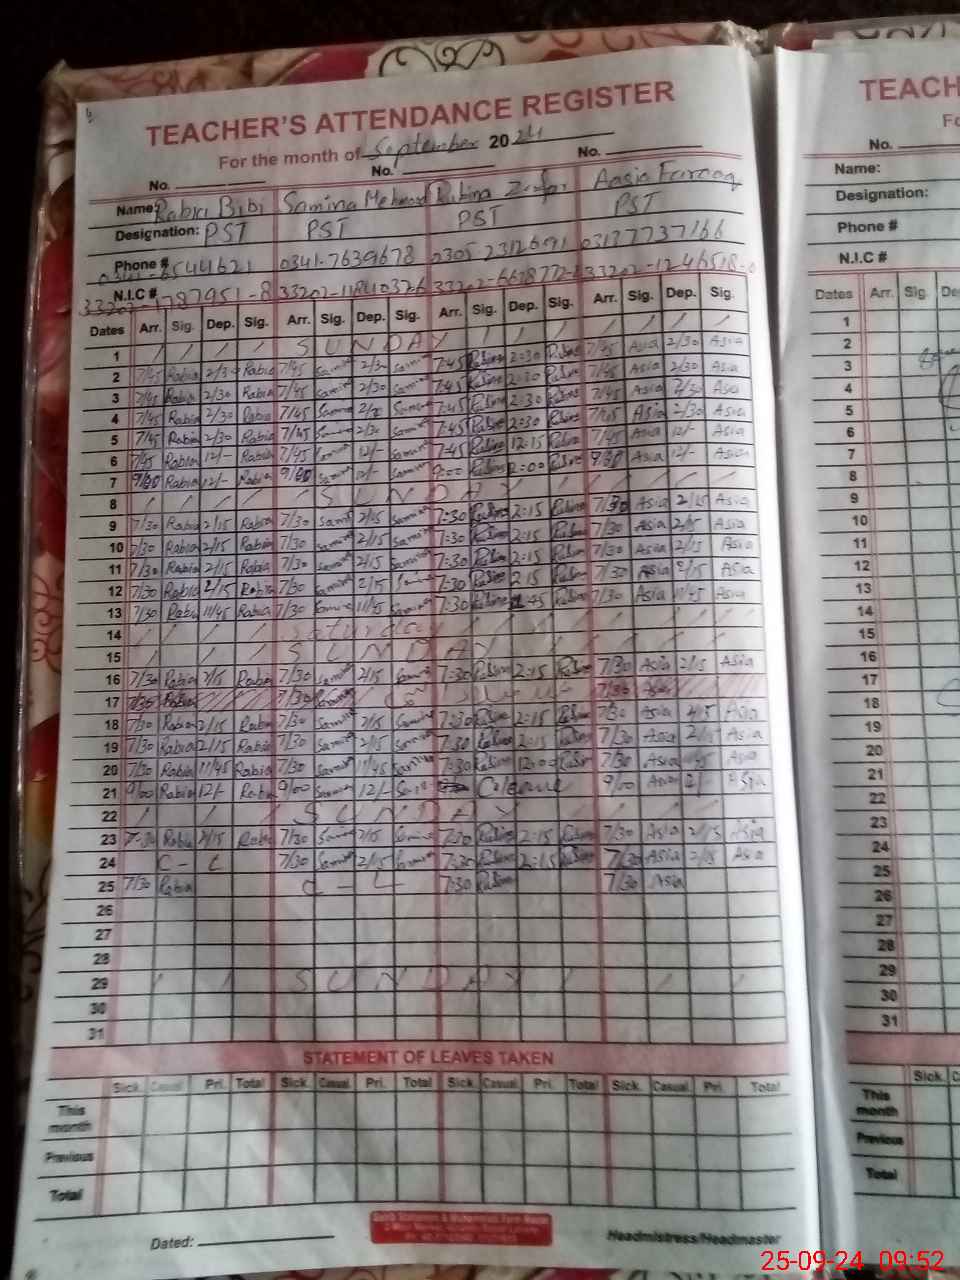 TEACHER'S ATTENDANCE REGISTER
For the month of September 2024
No. No. No.
Name: Rabia Bibi Samina Mehmood Rubina Zafar Aasia Farooq
Designation: PST PST PST PST
Phone # 6544621 0341-7639678 0305-2312691 03137737166
N.I.C #
Dates Arr. Sig. Dep. Sig. Arr. Sig. Dep. Sig. Arr. Sig. Dep. Sig. Arr. Sig. Dep. Sig.
1 SUNDAY
2 7/45 Rabia 2/30 Rabia 7/45 Samina 2/30 Samina 7:45 Rubina 2:30 Rubina 7/45 Asia 2/30 Asia
3 7/45 Rabia 2/30 Rabia 7/45 Samina 2/30 Samina 7:45 Rubina 2:30 Rubina 7/45 Asia 2/30 Asia
4 7/45 Rabia 2/30 Rabia 7/45 Samina Samina 7:45 Rubina 2:30 Rubina 7/45 Asia 2/30 Asia
5 7/45 Rabia 2/30 Rabia 7/45 Samina 2/30 Samina 7:45 Rubina 2:30 Rubina 7/45 Asia 2/30 Asia
6 7/45 Rabia 12/- Rabia 7/45 Samina 12/- Samina 7:45 Rubina 12:15 Rubina 7/45 Asia 12/- Asia
7 9/00 Rabia 12/- Rabia 9/00 Samina 12/- Samina 9:00 Rubina Rubina Asia 12/- Asia
8 SUNDAY
9 7/30 Rabia 2/15 Rabia 7/30 Samina 2/15 Samina 7:30 Rubina 2:15 Rubina 7/30 Asia 2/15 Asia
10 7/30 Rabia 2/15 Rabia 7/30 Samina 2/15 Samina 7:30 Rubina 2:15 Rubina 7/30 Asia 2/15 Asia
11 7/30 Rabia 2/15 Rabia 7/30 Samina 2/15 Samina 7:30 Rubina 2:15 Rubina 7/30 Asia 2/15 Asia
12 7/30 Rabia 2/15 Rabia 7/30 Samina 2/15 Samina 7:30 Rubina 2:15 Rubina 7/30 Asia 2/15 Asia
13 7/30 Rabia 11/45 Rabia 7/30 Samina 11/45 Samina 7:30 Rubina Rubina 7/30 Asia 11/45 Asia
14 Saturday
15 SUNDAY
16 7/30 Rabia 2/15 Rabia 7/30 Samina 2/15 Samina 7:30 Rubina 2:15 Rubina 7/30 Asia 2/15 Asia
17 7/30 Rabia 7/30 Samina 7/30 Asia
18 7/30 Rabia 2/15 Rabia 7/30 Samina 2/15 Samina 7:30 Rubina 2:15 Rubina 7/30 Asia Asia
19 7/30 Rabia 2/15 Rabia 7/30 Samina 2/15 Samina 7:30 Rubina 2:15 Rubina 7/30 Asia 2/15 Asia
20 7/30 Rabia 11/45 Rabia 7/30 Samina 11/45 Samina 7:30 Rubina 12:00 Rubina 7/30 Asia Asia
21 9/00 Rabia 12/- Rabia 9/00 Samina 12/- Samina C/leave 9/00 Asia Asia
22 SUNDAY
23 7:30 Rabia 2/15 Rabia 7/30 Samina 2/15 Samina 7:30 Rubina 2:15 Rubina 7/30 Asia 2/15 Asia
24 C - L 7/30 Samina 2/15 Samina 7:30 Rubina 2:15 Rubina 7/30 Asia 2/15 Asia
25 7/30 Rabia C - L 7:30 Rubina 7/30 Asia
26
27
28
29 SUNDAY
30
31
STATEMENT OF LEAVES TAKEN
Sick. Casual Pri. Total Sick. Casual. Pri. Total Sick. Casual. Pri. Total Sick. Casual. Pri. Total
This month
Previous
Total
Dated: Headmistress/Headmaster
TEACH
No.
Name:
Designation:
Phone #
N.I.C #
Dates Arr. Sig. De
1
2
3
4
5
6
7
8
9
10
11
12
13
14
15
16
17
18
19
20
21
22
23
24
25
26
27
28
29
30
31
Sick. C
This month
Previous
Total
25-09-24 09:52